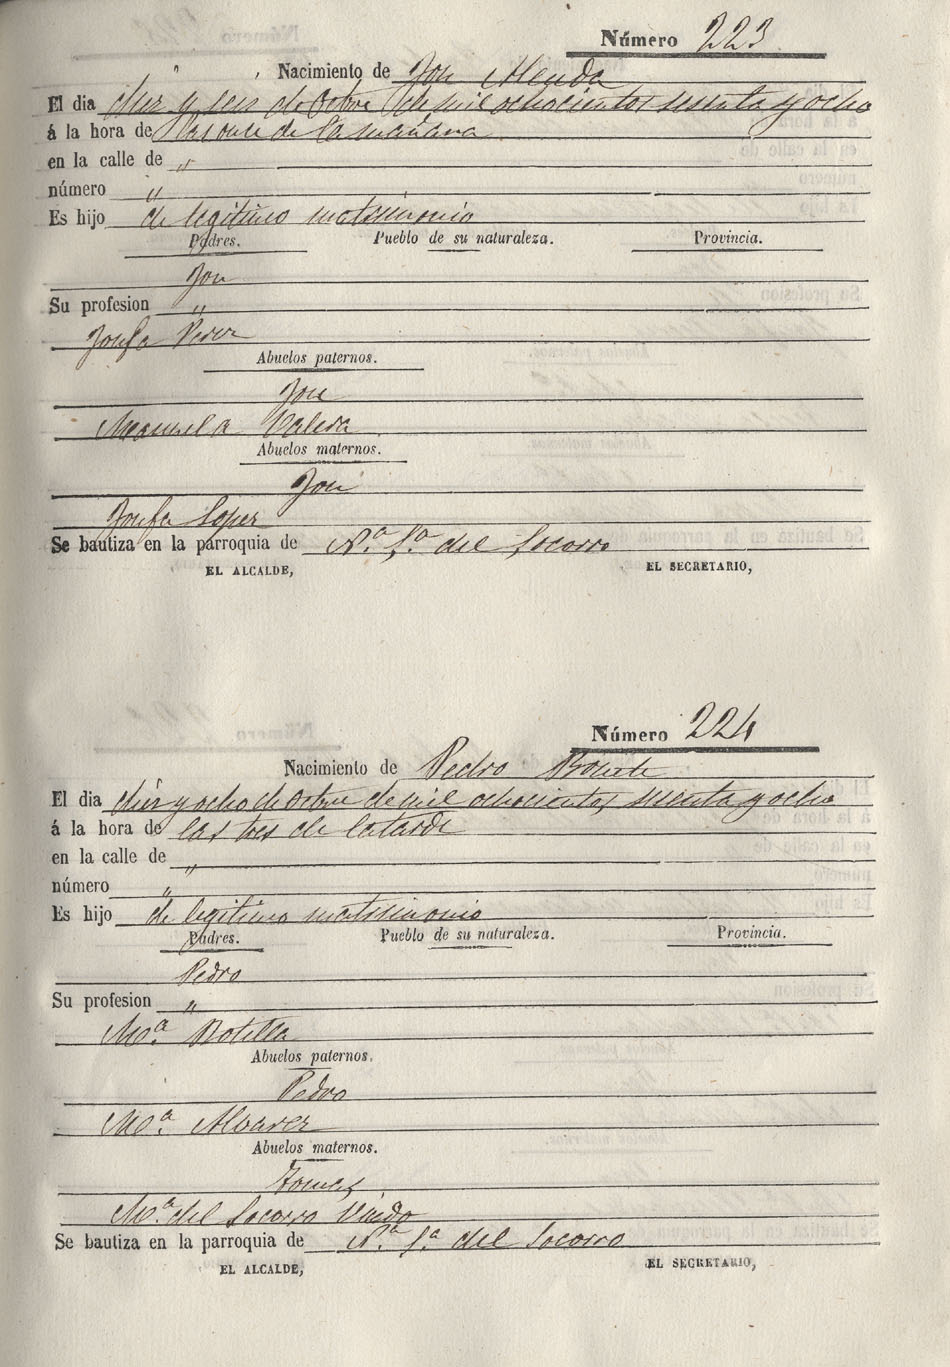 Número 223
Nacimiento de José Alenda
El día diez y seis de Octbre de mil ochocientos sesenta y ocho
á la hora de las once de la mañana
en la calle de "
número "
Es hijo de legitimo matrimonio
Padres. Pueblo de su naturaleza. Provincia.
José
Su profesion "
Josefa Perez
Abuelos paternos.
José
Manuela Valera
Abuelos maternos.
José
Josefa Lopez
Se bautiza en la parroquia de Nª Sª del Socorro
EL ALCALDE, EL SECRETARIO,
Número 224
Nacimiento de Pedro
El dia diez y ocho de Octbre de mil ochocientos sesenta y ocho
á la hora de las tres de la tarde
en la calle de "
número "
Es hijo de legitimo matrimonio
Padres. Pueblo de su naturaleza. Provincia.
Pedro
Su profesion "
Mª Botella
Abuelos paternos.
Pedro
Mª Alvarez
Abuelos maternos.
Tomas
Mª del Socorro
Se bautiza en la parroquia de Nª Sª del Socorro
EL ALCALDE, EL SECRETARIO,